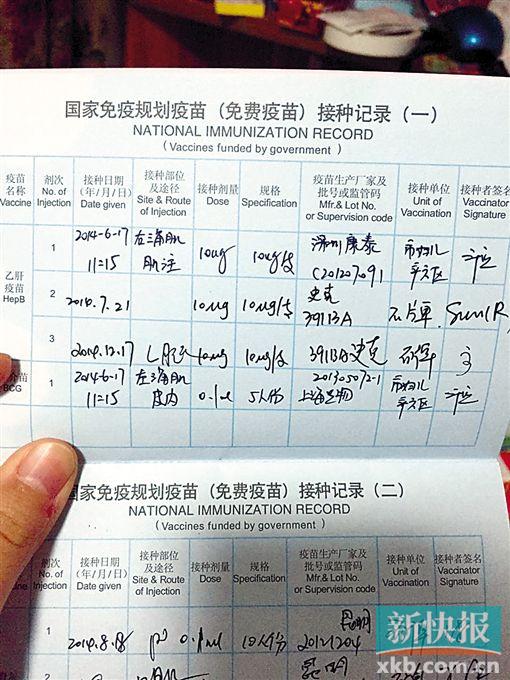 国家免疫规划疫苗（免费疫苗）接种记录（一）
NATIONAL IMMUNIZATION RECORD
( Vaccines funded by government )
疫苗名称 Vaccine 剂次 No. of Injection 接种日期 (年/月/日) Date given 接种部位及途径 Site & Route of Injection 接种剂量 Dose 规格 Specification 疫苗生产厂家及批号或监管码 Mfr.& Lot No. or Supervision code 接种单位 Unit of Vaccination 接种者签名 Vaccinator Signature
乙肝疫苗 HepB
1 2014-6-17 11:15 左三角肌 肌注 10ug 10ug/支 深圳康泰 C201207091 市妇儿
2 2014.7.21 10ug 10ug/支 史克 3911BA
3 2014.12.17 10ug 10ug/支 3911BA 史克
苗 BCG 1 2014-6-17 11:15 左三角肌 皮内 0.1ml 5人份 上海生物 市妇儿
国家免疫规划疫苗（免费疫苗）接种记录（二）
NATIONAL IMMUNIZATION RECORD
( Vaccines funded by government )
剂次 No. of Injection 接种日期 (年/月/日) Date given 接种部位及途径 Site & Route of Injection 接种剂量 Dose 规格 Specification 疫苗生产厂家及批号或监管码 Mfr.& Lot No. or Supervision code 接种单位 Unit of Vaccination 接种者签名 Vaccinator Signature
1 2014.8.18 10人份 昆明 20121204
2 昆明
新快报
xkb.com.cn